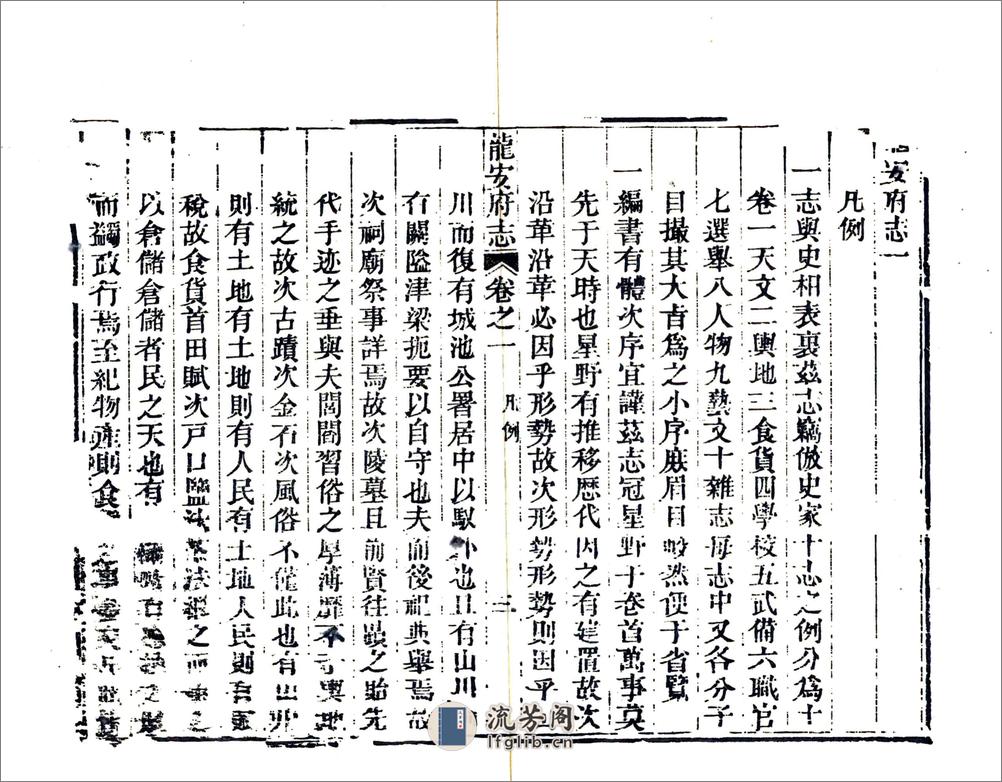 龍安府志
凡例
一志與史相表裏茲志竊倣史家十志之例分爲十
卷一天文二輿地三食貨四學校五武備六職官
七選舉八人物九藝文十雜志每志中又各分子
目撮其大㫖爲之小序庶眉目較然便于省覽
一編書有體次序宜謹茲志冠星野于卷首萬事莫
先于天時也星野有推移歷代因之有建置故次
沿革沿革必因乎形勢故次形勢形勢則因乎
龍安府志 卷之一 凡例 二
川而復有城池公署居中以馭外也且有山川
有關隘津梁扼要以自守也夫而後祀典舉焉故
次祠廟祭事詳焉故次陵墓且前賢往蹟之貽先
代手迹之垂與夫閭閻習俗之厚薄靡不于輿地
統之故次古蹟次金石次風俗不僅此也有
則有土地有土地則有人民有土地人民則有
稅故食貨首田賦次戶口鹽法之
以倉儲倉儲者民之天也有
而蠲政行焉至紀物產則食
流芳阁
lfglib.cn